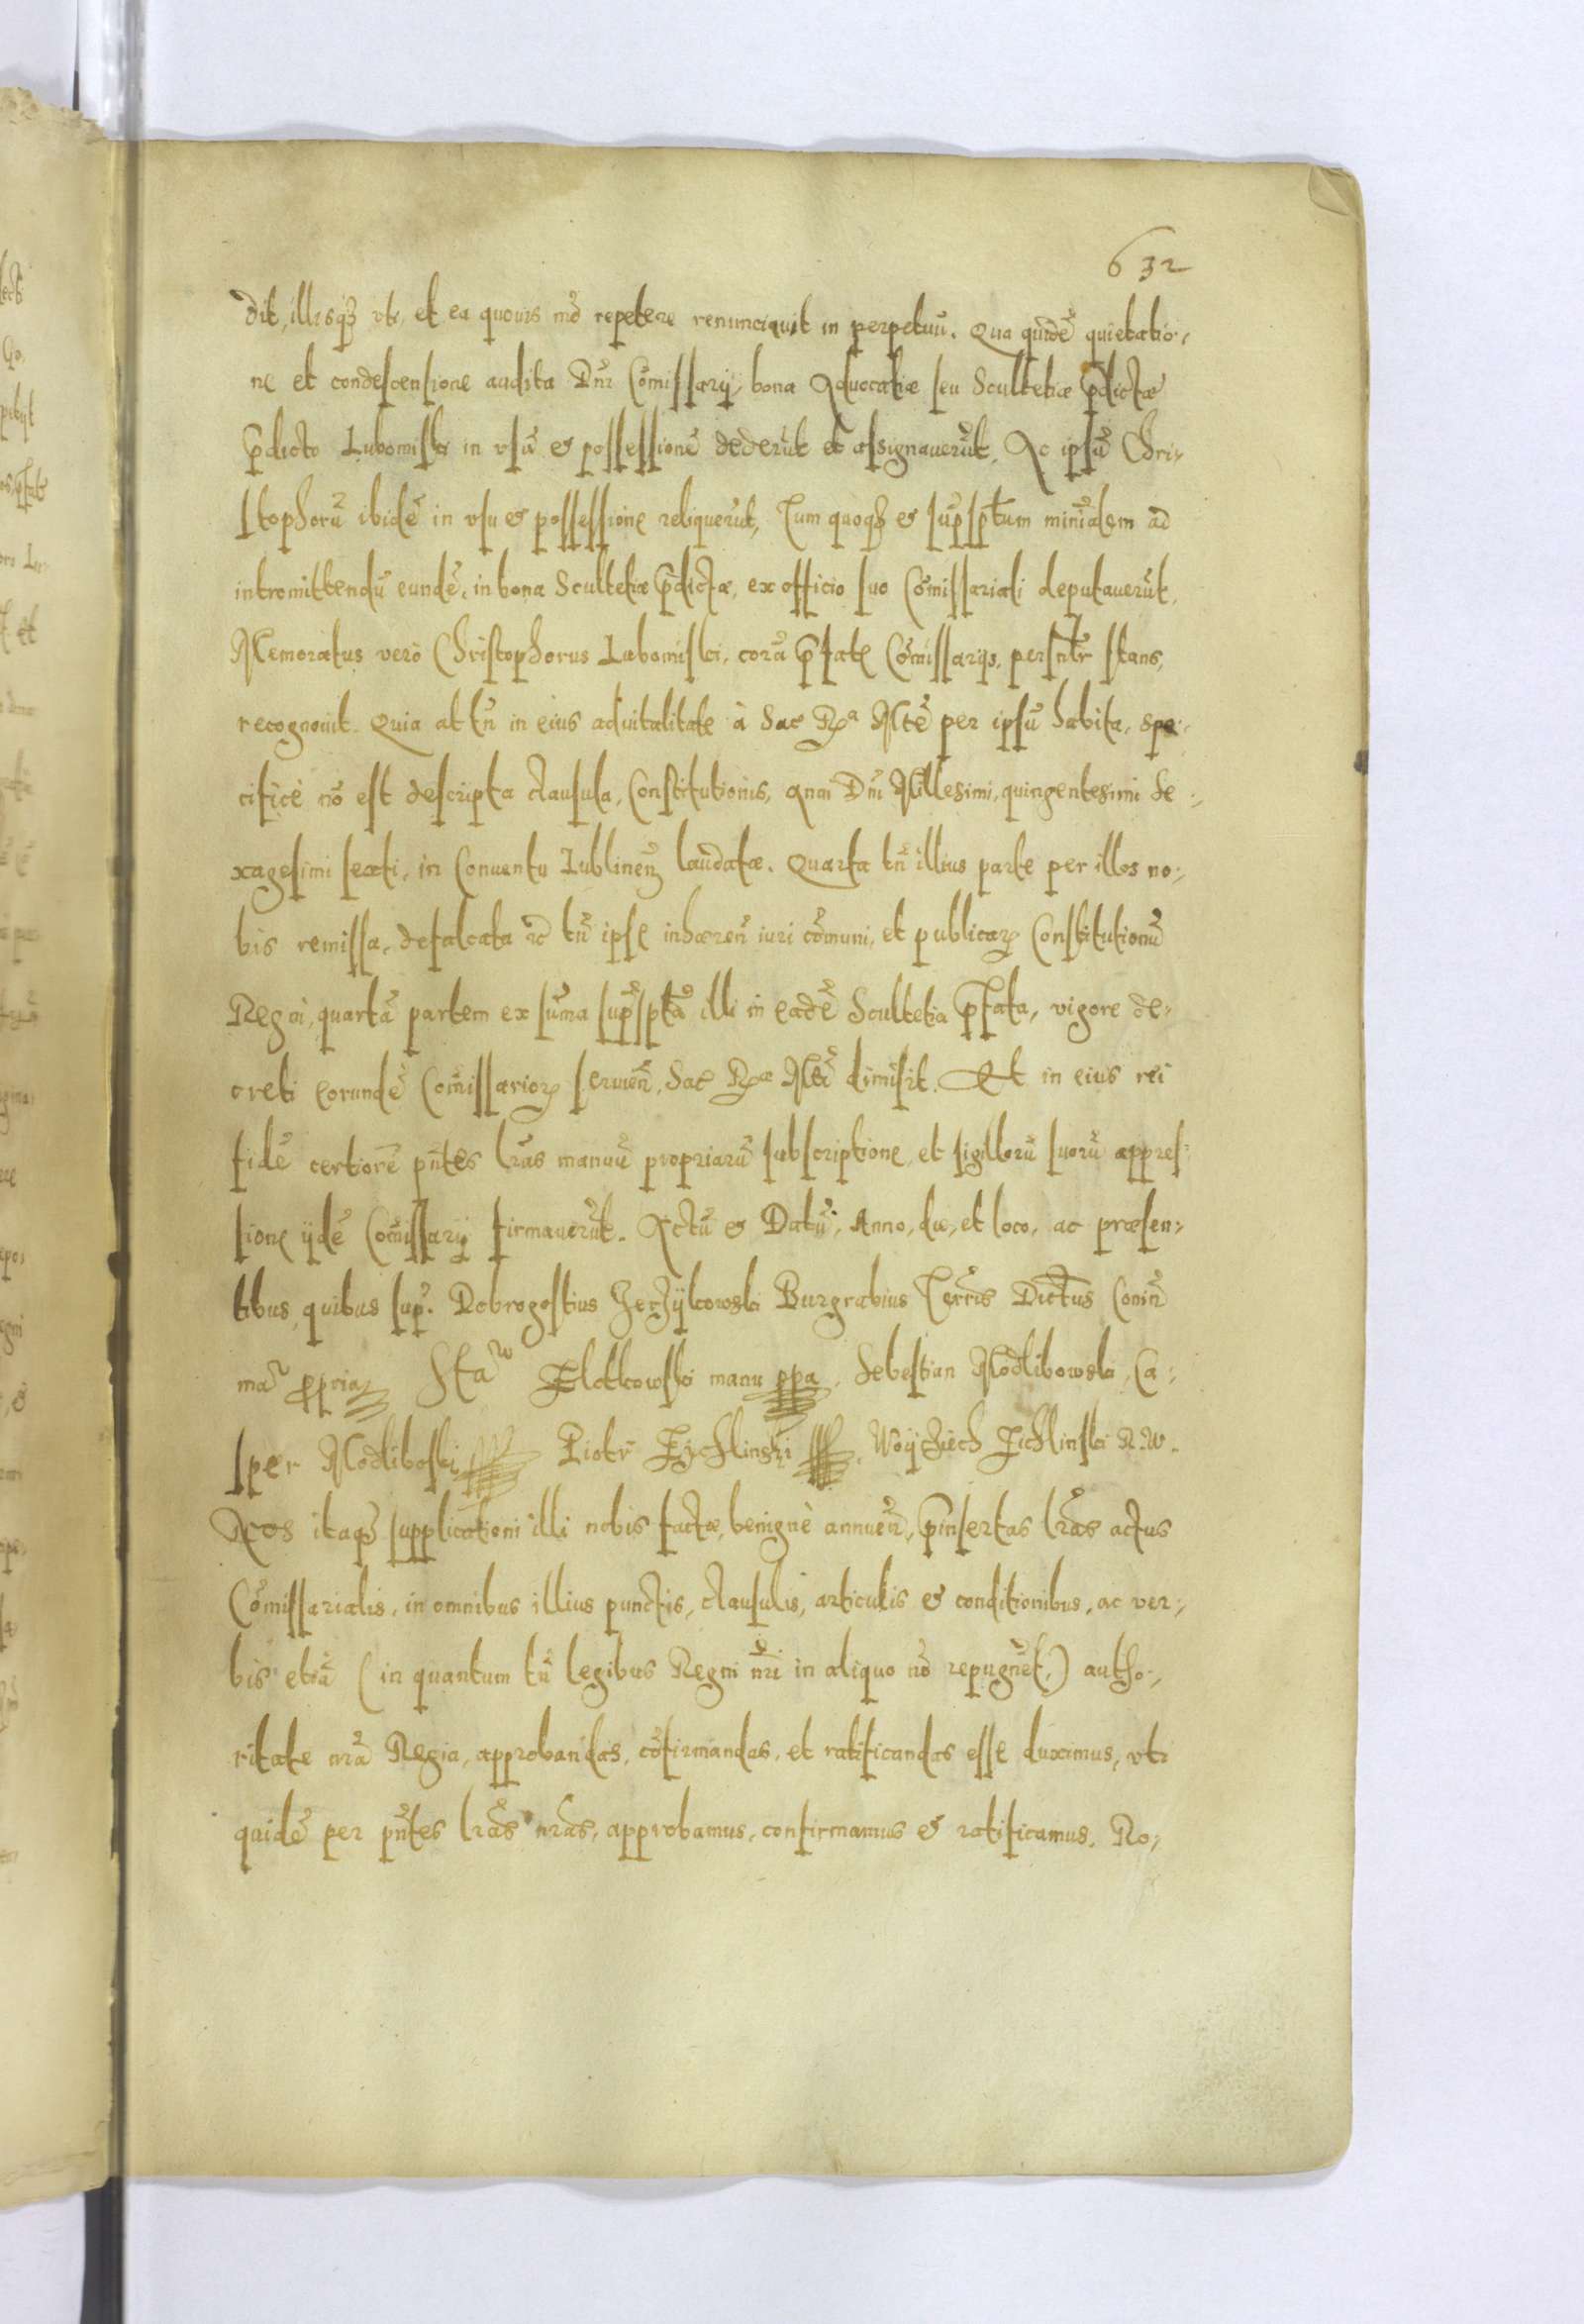 632
dit, illisq₃ uti, et ea quouis mō repetere renunciauit in perpetuū. Qua quidē quietatio-
ne et condescensione audita Dnī Cōmissarij, bona Aduocatiæ seu Scultetiæ p̄dictæ
p̄dicto Lubomiski in vsū & possessionē dederūt et assignauerūt. Ac ipsū Chri-
stophorū ibidē in vsu & possessione reliquerūt, Tum quoq₃ & sup̄sptum minīalem ad
intromittendū eundē, in bona Scultetiæ p̄dictæ, ex officio suo Cōmissariali deputauerūt.
Memoratus vero Christophorus Lubomiski, corā p̄fatis Cōmissarijs, persnlr̄ stans,
recognouit. Quia attn̄ in eius aduitalitate à Sac Rᵃ Mtē per ipsū habita, spe-
cificè nō est descripta clausula, Constitutionis, Anni Dnī Millesimi, quingentesimi Se-
xagesimi sexti, in Conuentu Lublinen̄ laudatæ. Quarta tn̄ illius parte per illos no-
bis remissa, defalcata &c tn̄ ipse inhæren̄ iuri cōmuni, et publicaꝝ Constitutionū
Regni, quartā partem ex sūma sup̄sptā illi in eadē Scultetia p̄fata, vigore de-
creti eorundē Cōmissarioꝝ seruien̄, Sac Ræ Mti dimisit. Et in eius rei
fidē certiorē pn̄tes lrās manuū propriarū subscriptione, et sigillorū suorū appres-
sione ijdē Cōmissarij firmauerūt. Actū & Datū, Anno, die, et loco, ac præsen-
tibus, quibus sup̄. Dobrogostius Burgrabius Terrīs Conin̄
ma propria Staʷ manu ppa. Sebestian Modlibowski, Ca-
sper Modliboski Piotr Zychlinski, Woijciech Zichlinski R. W.
Nos itaq₃ supplicationi illi nobis factæ, benignè annuen̄, p̄insertas lrās actus
Cōmissarialis, in omnibus illius punctis, clausulis, articulis & conditionibus, ac ver-
bis etiā (in quantum tn̄ legibus Regni nrī in aliquo nō repugnēt,) autho-
ritate nrā Regia, approbandas, cōfirmandas, et ratificandas esse duximus, uti
quidē per pn̄tes lrās nrās, approbamus, confirmamus & ratificamus. Ro-